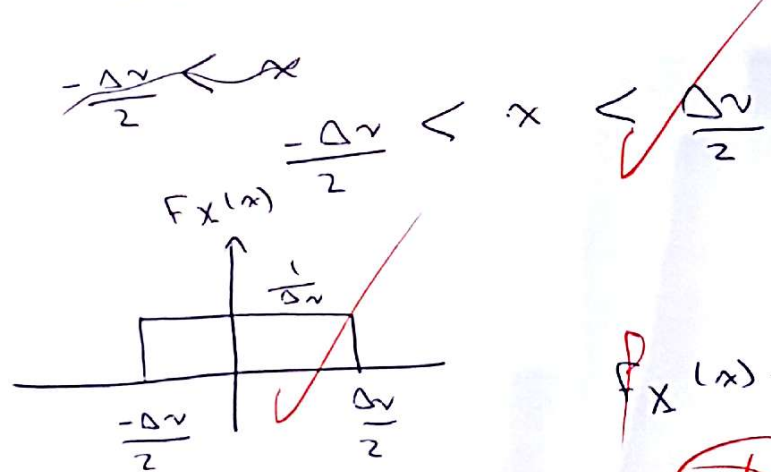 -Δv/2 < x
-Δv/2 < x < Δv/2
Fx(x)
1/Δv
-Δv/2 Δv/2
fx(x)